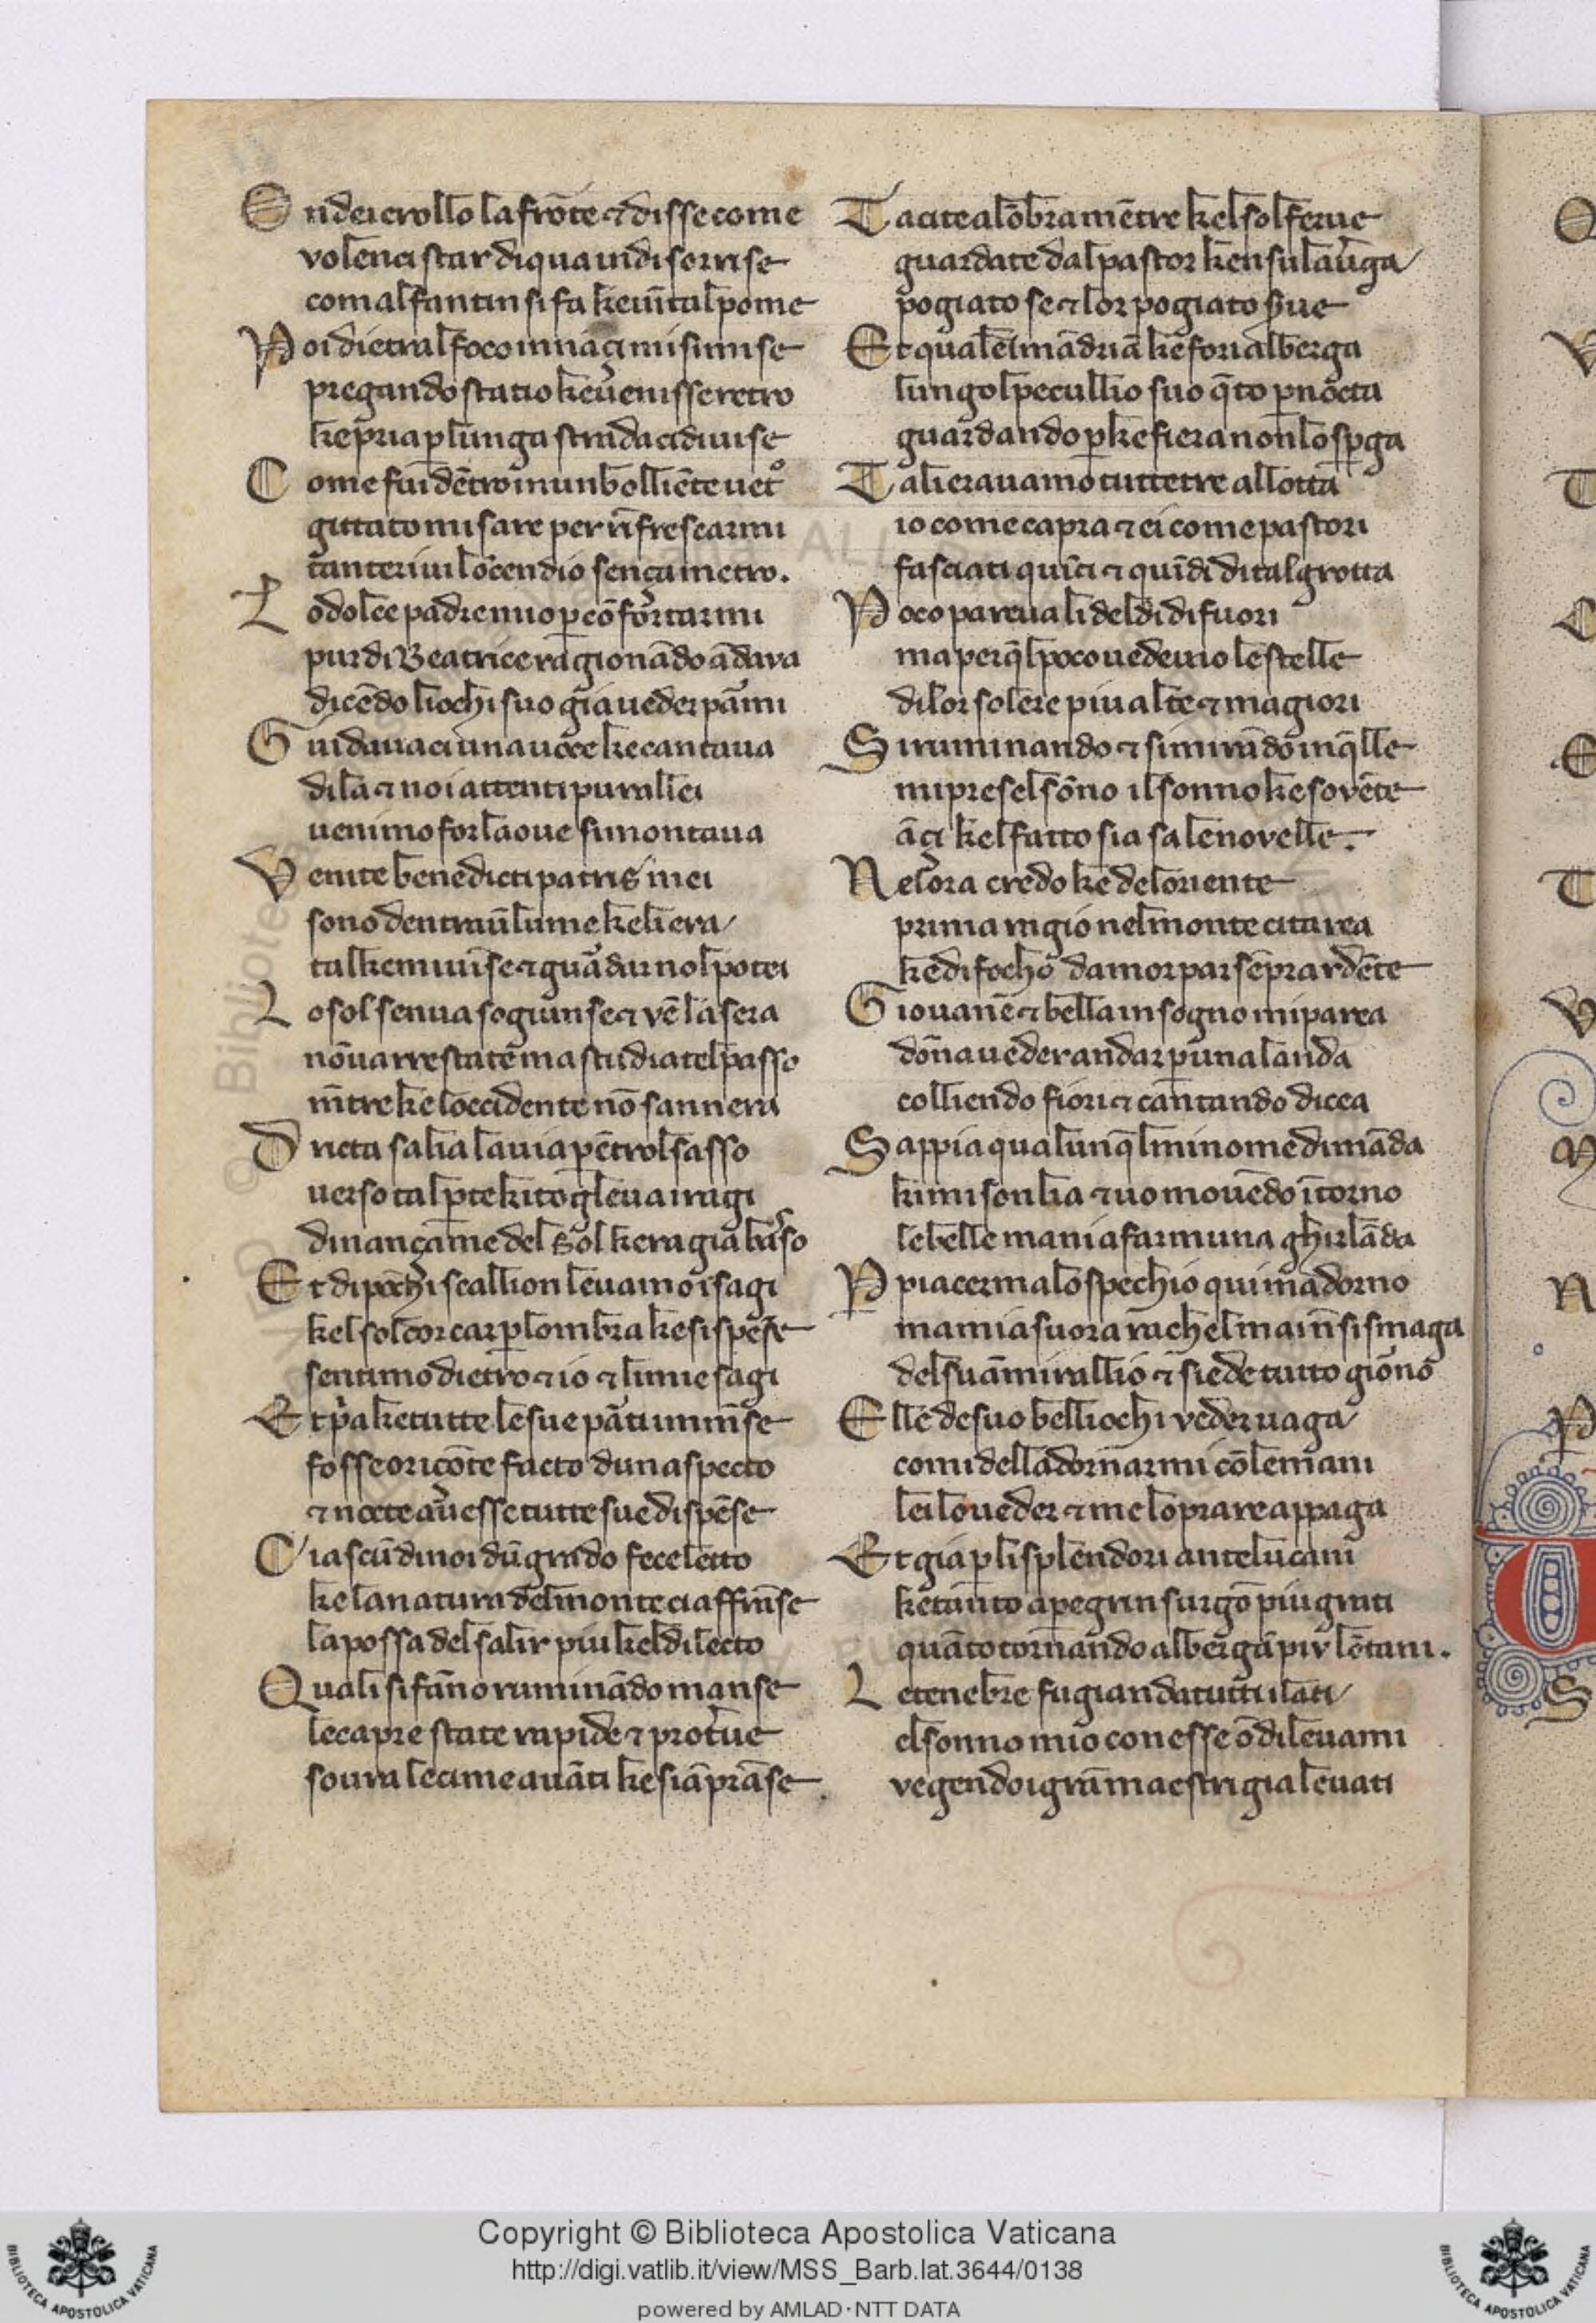 Ondei crollo la frōte ⁊ disse come
volenci star di qua indi sorrise
com al fantin si fa ke vīto al pome
Poi dietral foco innāçi mi si mise
pregando statio ke venisse retro
ke pria p lunga strada ci divise
Come fui dētro in un bolliēte vetº
gittato mi sare per rīfrescarmi
tanter ivi lo cendio sença metro.
Lo dolce padre mio p cōfortarmi
pur di Beatrice ragionādo ādava
dicēdo li ochi suo gia veder pami
Guidavaci una voce ke cantava
di la ⁊ noi attenti pur a liei
venimo for la ove si montava
Venite benedicti patris mei
sono dentraū lume ke li era
tal ke mi vīse ⁊ guādar nol potei
Lo sol sen va sogiunse ⁊ vē la sera
nō varrestate ma studiatel passo
mētre ke loccidente nō sannera
Dricta salia la via p ētrol sasso
verso tal pte kito gleva i ragi
dinançame del sol kera gia basso
Et di pochi scallion levamo i sagi
kel sol corcar p lombra ke si spēse
sentimo dietro ⁊ io ⁊ li mie sagi
Et pa ke tutte le sue pati mmēse
fosse oricōte facto dun aspecto
⁊ nocte avesse tutte sue dispēse
Ciascū di noi dū grado fece lecto
ke la natura del monte ci affrāse
la possa del salir piu kel dilecto
Quali si fāno ruminādo manse
le capre state rapide ⁊ proteve
sovra le cime avāti ke siā prāse
Tacite alōbra mētre kel sol ferve
guardate dal pastor ken su la vga
pogiato se ⁊ lor pogiato sve
Et quale il mādriā ke fori alberga
lungol pecullio suo qeto pnocta
guardando p ke fiera non lo spga
Tali eravamo tutte tre allotta
io come capra ⁊ ei come pastori
fasciati quīci ⁊ quīdi dital grotta
Poco pareva li del di di fuori
ma per ql poco vedevio le stelle
di lor solere piu alte ⁊ magiori
Si ruminando ⁊ si mirādo in qlle
mi presel sōno il sonno ke sovēte
āçi kel fatto sia sa le novelle.
Nelora credo ke deloriente
prima ragio nel monte citarea
ke di focho damor par sēprardēte
Giovanē ⁊ bella in sogno mi parea
dōna veder andar p una landa
colliendo fiori ⁊ cantando dicea
Sappia qualunq l mi nome dimāda
ki mi son lia ⁊ vo movēdo ītorno
le belle mani a farmi una ghirlāda
P piacermalo spechio qui madorno
ma mia suora rachel mai nsi smaga
del suā mirallio ⁊ siede tutto giōno
Elle de suo belli ochi veder vaga
comi delladornarmi cō le mani
lei lo veder ⁊ me loprare appaga
Et gia p li splendori antelucani
ke tanto a pegrin surgō piu grati
quāto tornando albergā piv lōtani.
Le tenebre fugian da tutti i lati
el sonno mio con esse ōdi levami
vegendo i grā maestri gia levati
Copyright © Biblioteca Apostolica Vaticana
http://digi.vatlib.it/view/MSS_Barb.lat.3644/0138
powered by AMLAD·NTT DATA